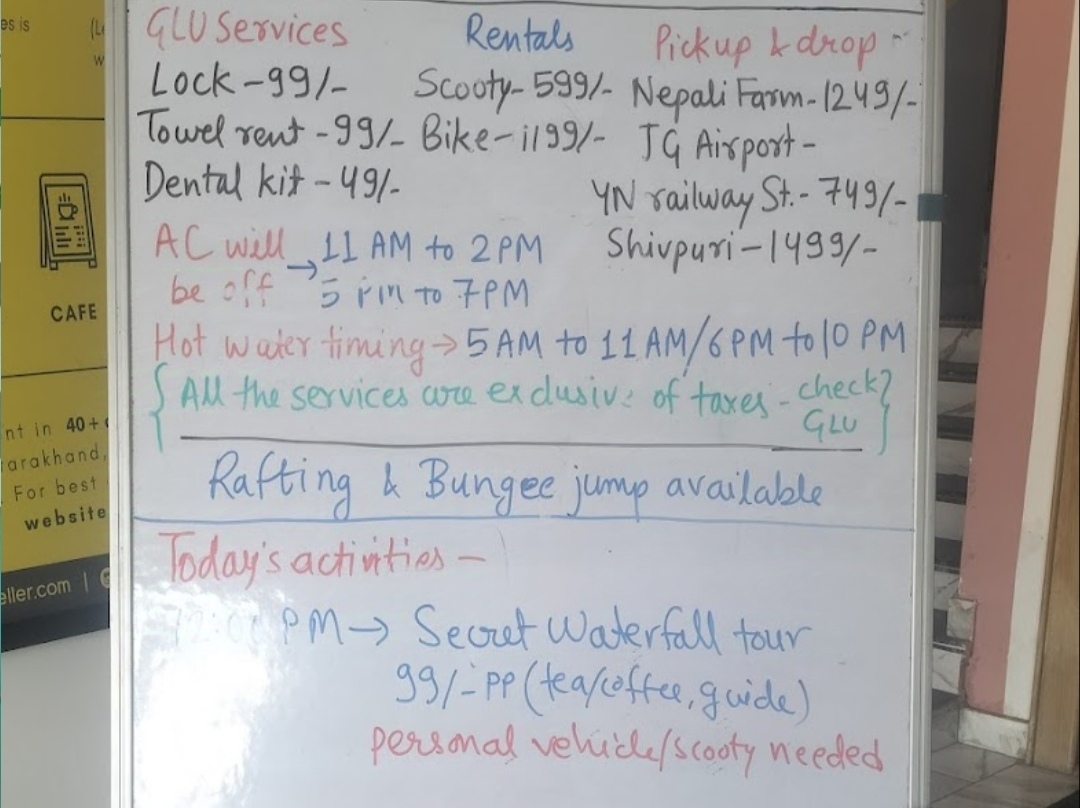 es is
(L
w
CAFE
nt in 40+
arakhand,
For best
website
eller.com |
GLU Services
Lock - 99/-
Towel rent - 99/-
Dental kit - 49/-
Rentals
Scooty - 599/-
Bike - 1199/-
Pickup & drop -
Nepali Farm - 1249/-
JG Airport -
YN railway St. - 749/-
Shivpuri - 1499/-
AC will be off → 11 AM to 2 PM
5 PM to 7 PM
Hot water timing → 5 AM to 11 AM / 6 PM to 10 PM
{ All the services are exclusive of taxes - check GLU }
Rafting & Bungee jump available
Today's activities -
PM → Secret Waterfall tour
99/- PP (tea/coffee, guide)
personal vehicle/scooty needed